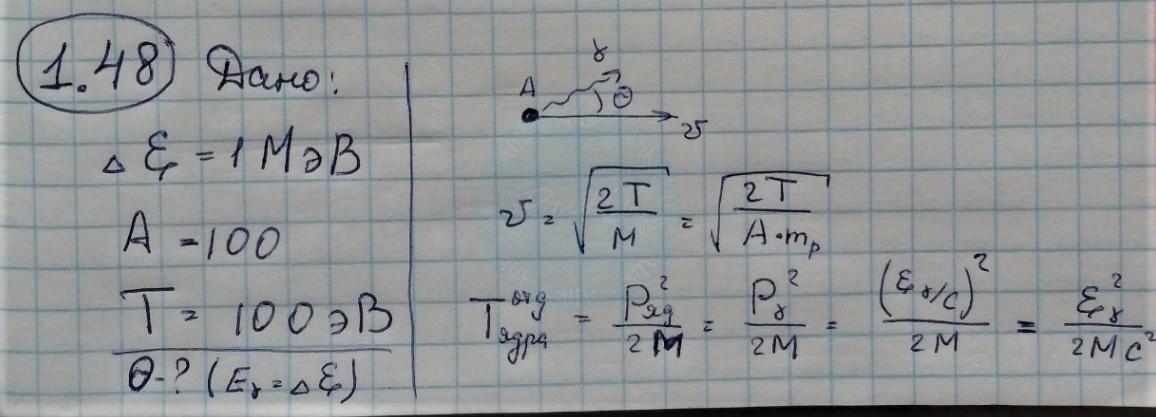 1.48 Дано:
Δ ℰ = 1 МэВ
A = 100
T = 100 эВ
θ - ? (Eγ = Δ ℰ)
γ
A
θ
v
v = √(2T/M) = √(2T/(A·m_p))
T_ядра^отд = P_яд²/2M = P_γ²/2M = (ℰ_γ/c)²/2M = ℰ_γ²/2Mc²